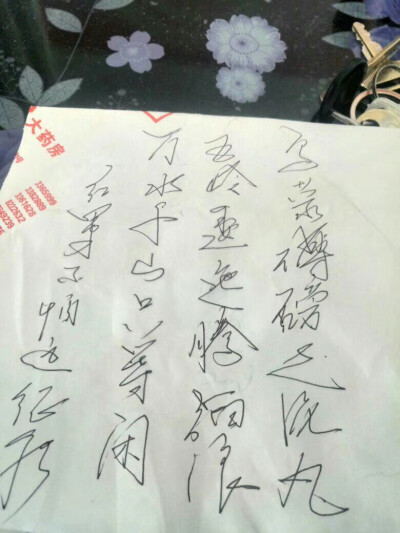 红军不怕远征难
万水千山只等闲
五岭逶迤腾细浪
乌蒙礴磅走泥丸
大药房